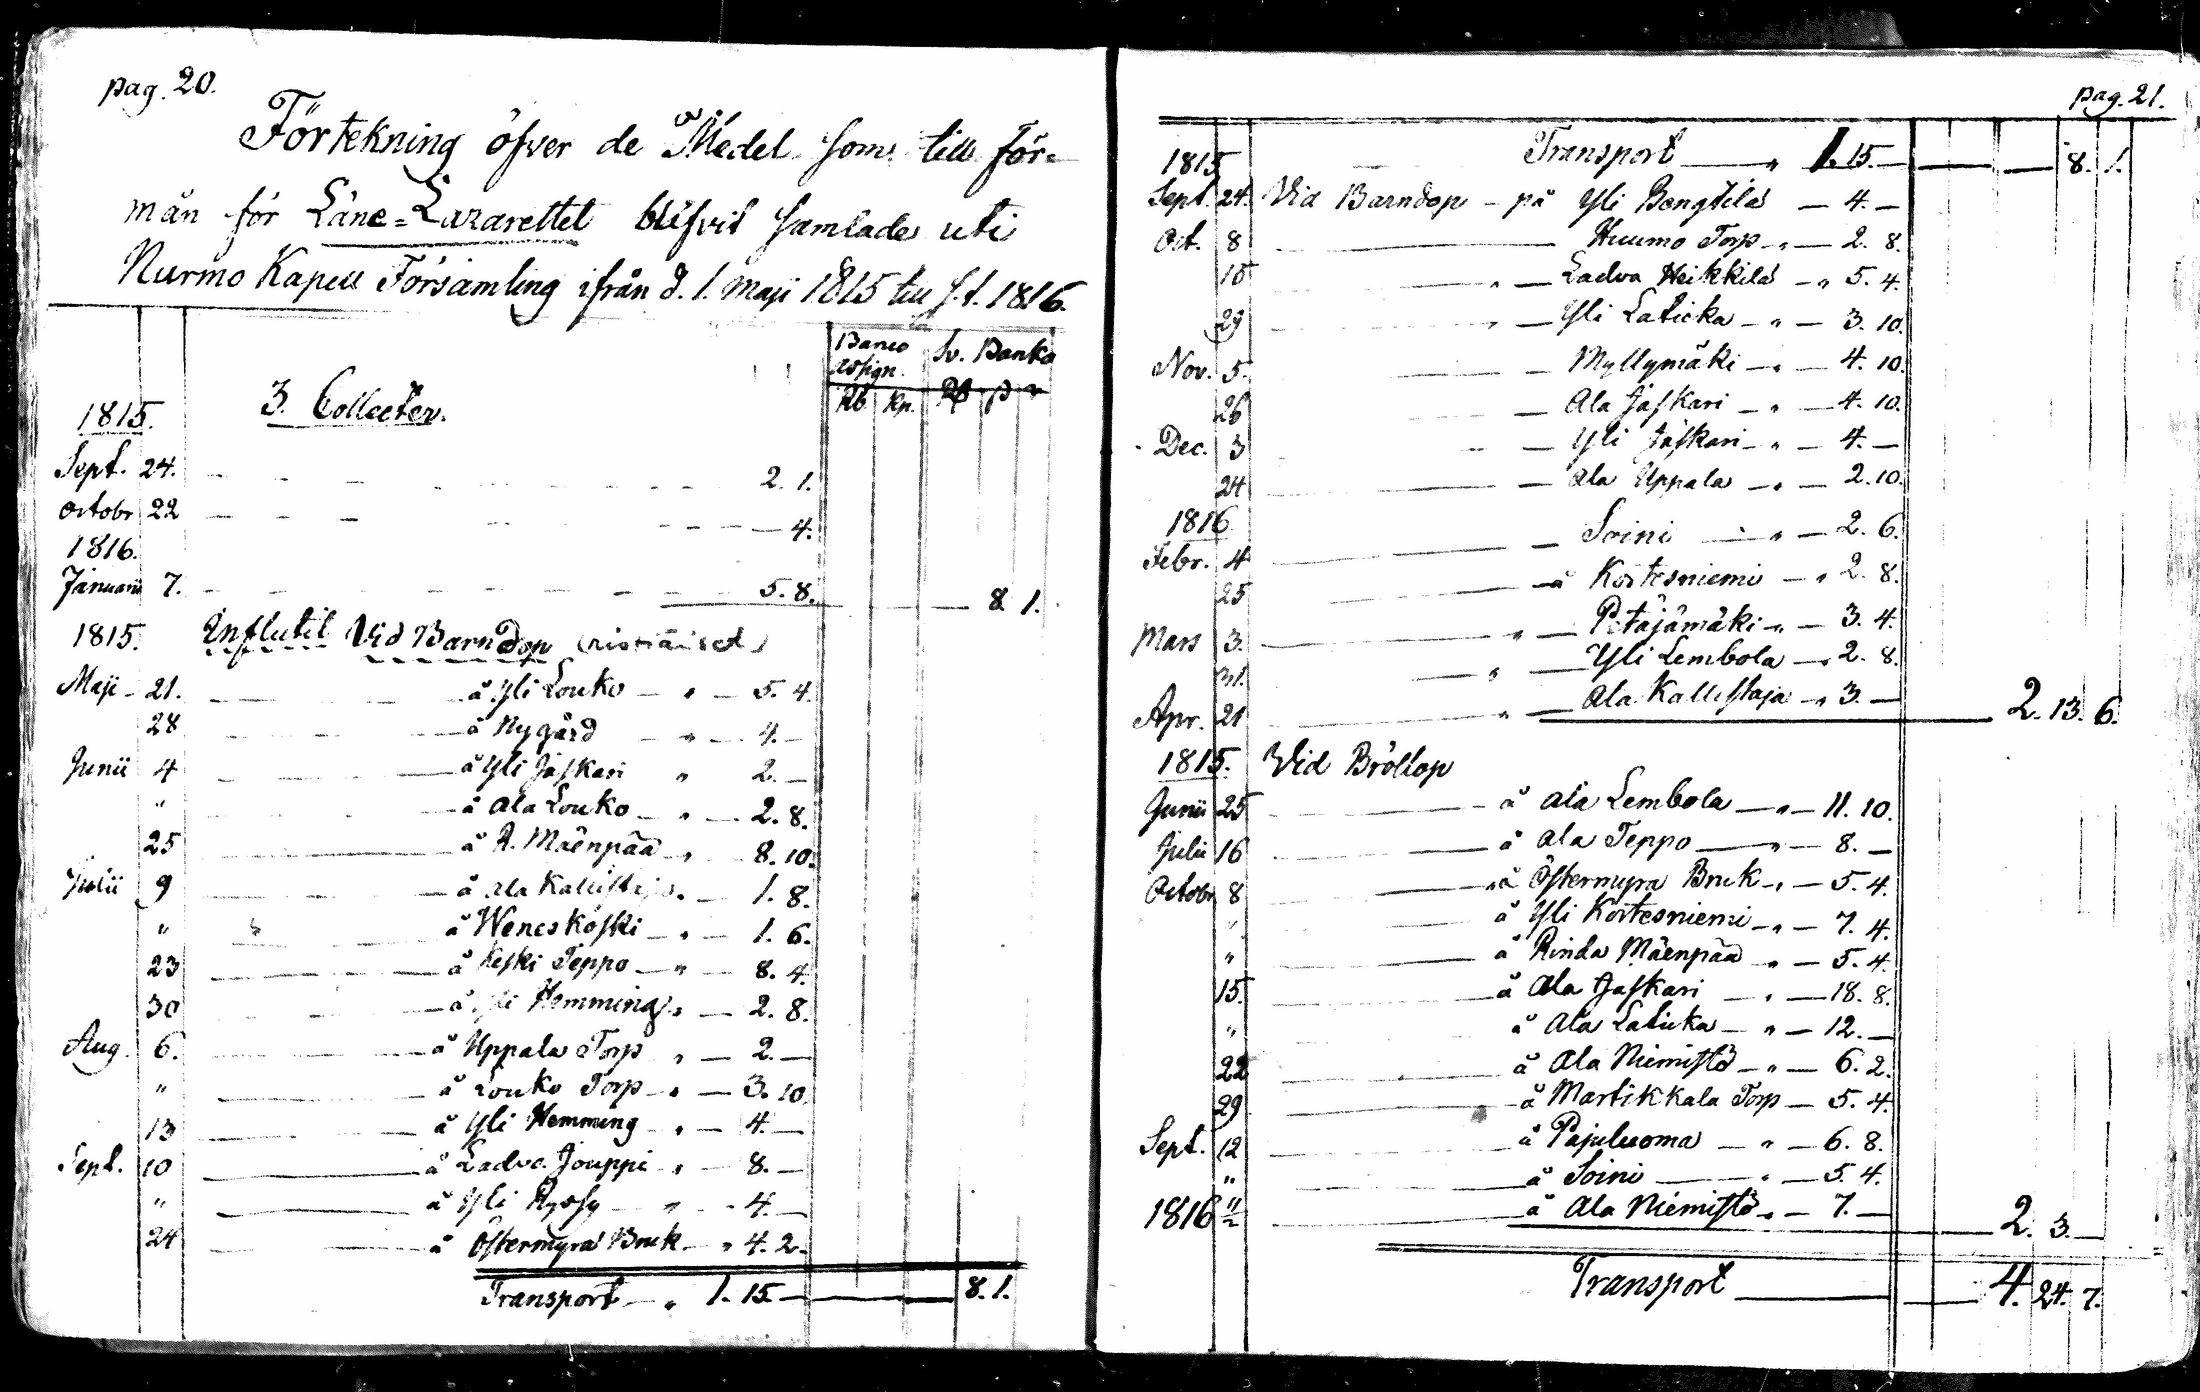 pag. 20.
Förtekning öfver de Medel som till för-
mån för Läne=Lazarettet blifvit samlade uti
Nurmo Kapell Församling ifrån d. 1. Maji 1815 till s. t. 1816.
Banco assign. Sv. Banko
Rb. Kp. Rd ß r
1815. 3. Collecter.
Sept. 24. 2. 1.
Octobr 22 4.
1816.
Januarii 7. 5. 8. 8 1.
1815. Influtit Vid Barndop (ristiäiset)
Maji 21. å Yli Louko " 5. 4.
28 å Nygård " 4. —
Junii 4 å Yli Jaskari " 2. —
" å Ala Louko " 2. 8.
25 å R. Mäenpää " 8. 10.
Julii 9 å Ala Kallistaja " 1. 8.
" å Weneskoski " 1. 6.
23 å Keski Teppo " 8. 4.
30 å Yli Hemming " 2. 8.
Aug. 6. å Uppala Torp " 2. —
" å Louko Torp " 3. 10.
13 å Yli Hemming " 4. —
Sept. 10 å Ladva Jouppi " 8. —
" å Yli " 4. —
24 å Östermyra Bruk " 4. 2.
Transport " 1. 15. — 8. 1.
pag. 21.
1815 Transport " 1. 15. — 8. 1.
Sept. 24. Vid Barndop på Yli Bengtilä 4. —
Oct. 8 Huumo Torp " 2. 8.
15 " Ladva Heikkilä " 5. 4.
29 " Yli Laticka " 3. 10.
Nov. 5. Myllymäki " 4. 10.
26 Ala Jaskari " 4. 10.
Dec. 3 Yli Jaskari " 4. —
24 Ala Uppala " 2. 10.
1816 Soini " 2. 6.
Febr. 4
25 å Kortesniemi " 2. 8.
Mars 3. " Petäjämäki " 3. 4.
31. " Yli Lembola " 2. 8.
Apr. 21 " Ala Kallistaja " 3. — 2. 13. 6.
1815. Vid Bröllop
Junii 25 å Ala Lembola " 11. 10.
Julii 16 å Ala Teppo " 8. —
Octobr 8 å Östermyra Bruk " 5. 4.
" å Yli Kortesniemi " 7. 4.
" å Rinda Mäenpää " 5. 4.
15. å Ala Jaskari " 18. 8.
" å Ala Laticka " 12. —
22 å Ala Niemistö " 6. 2.
29 å Martikkala Torp 5. 4.
Sept. 12 å Pajuluoma " 6. 8.
" å Soini " 5. 4.
1816 å Ala Niemistö " 7. — 2. 3. —
Transport 4. 24. 7.